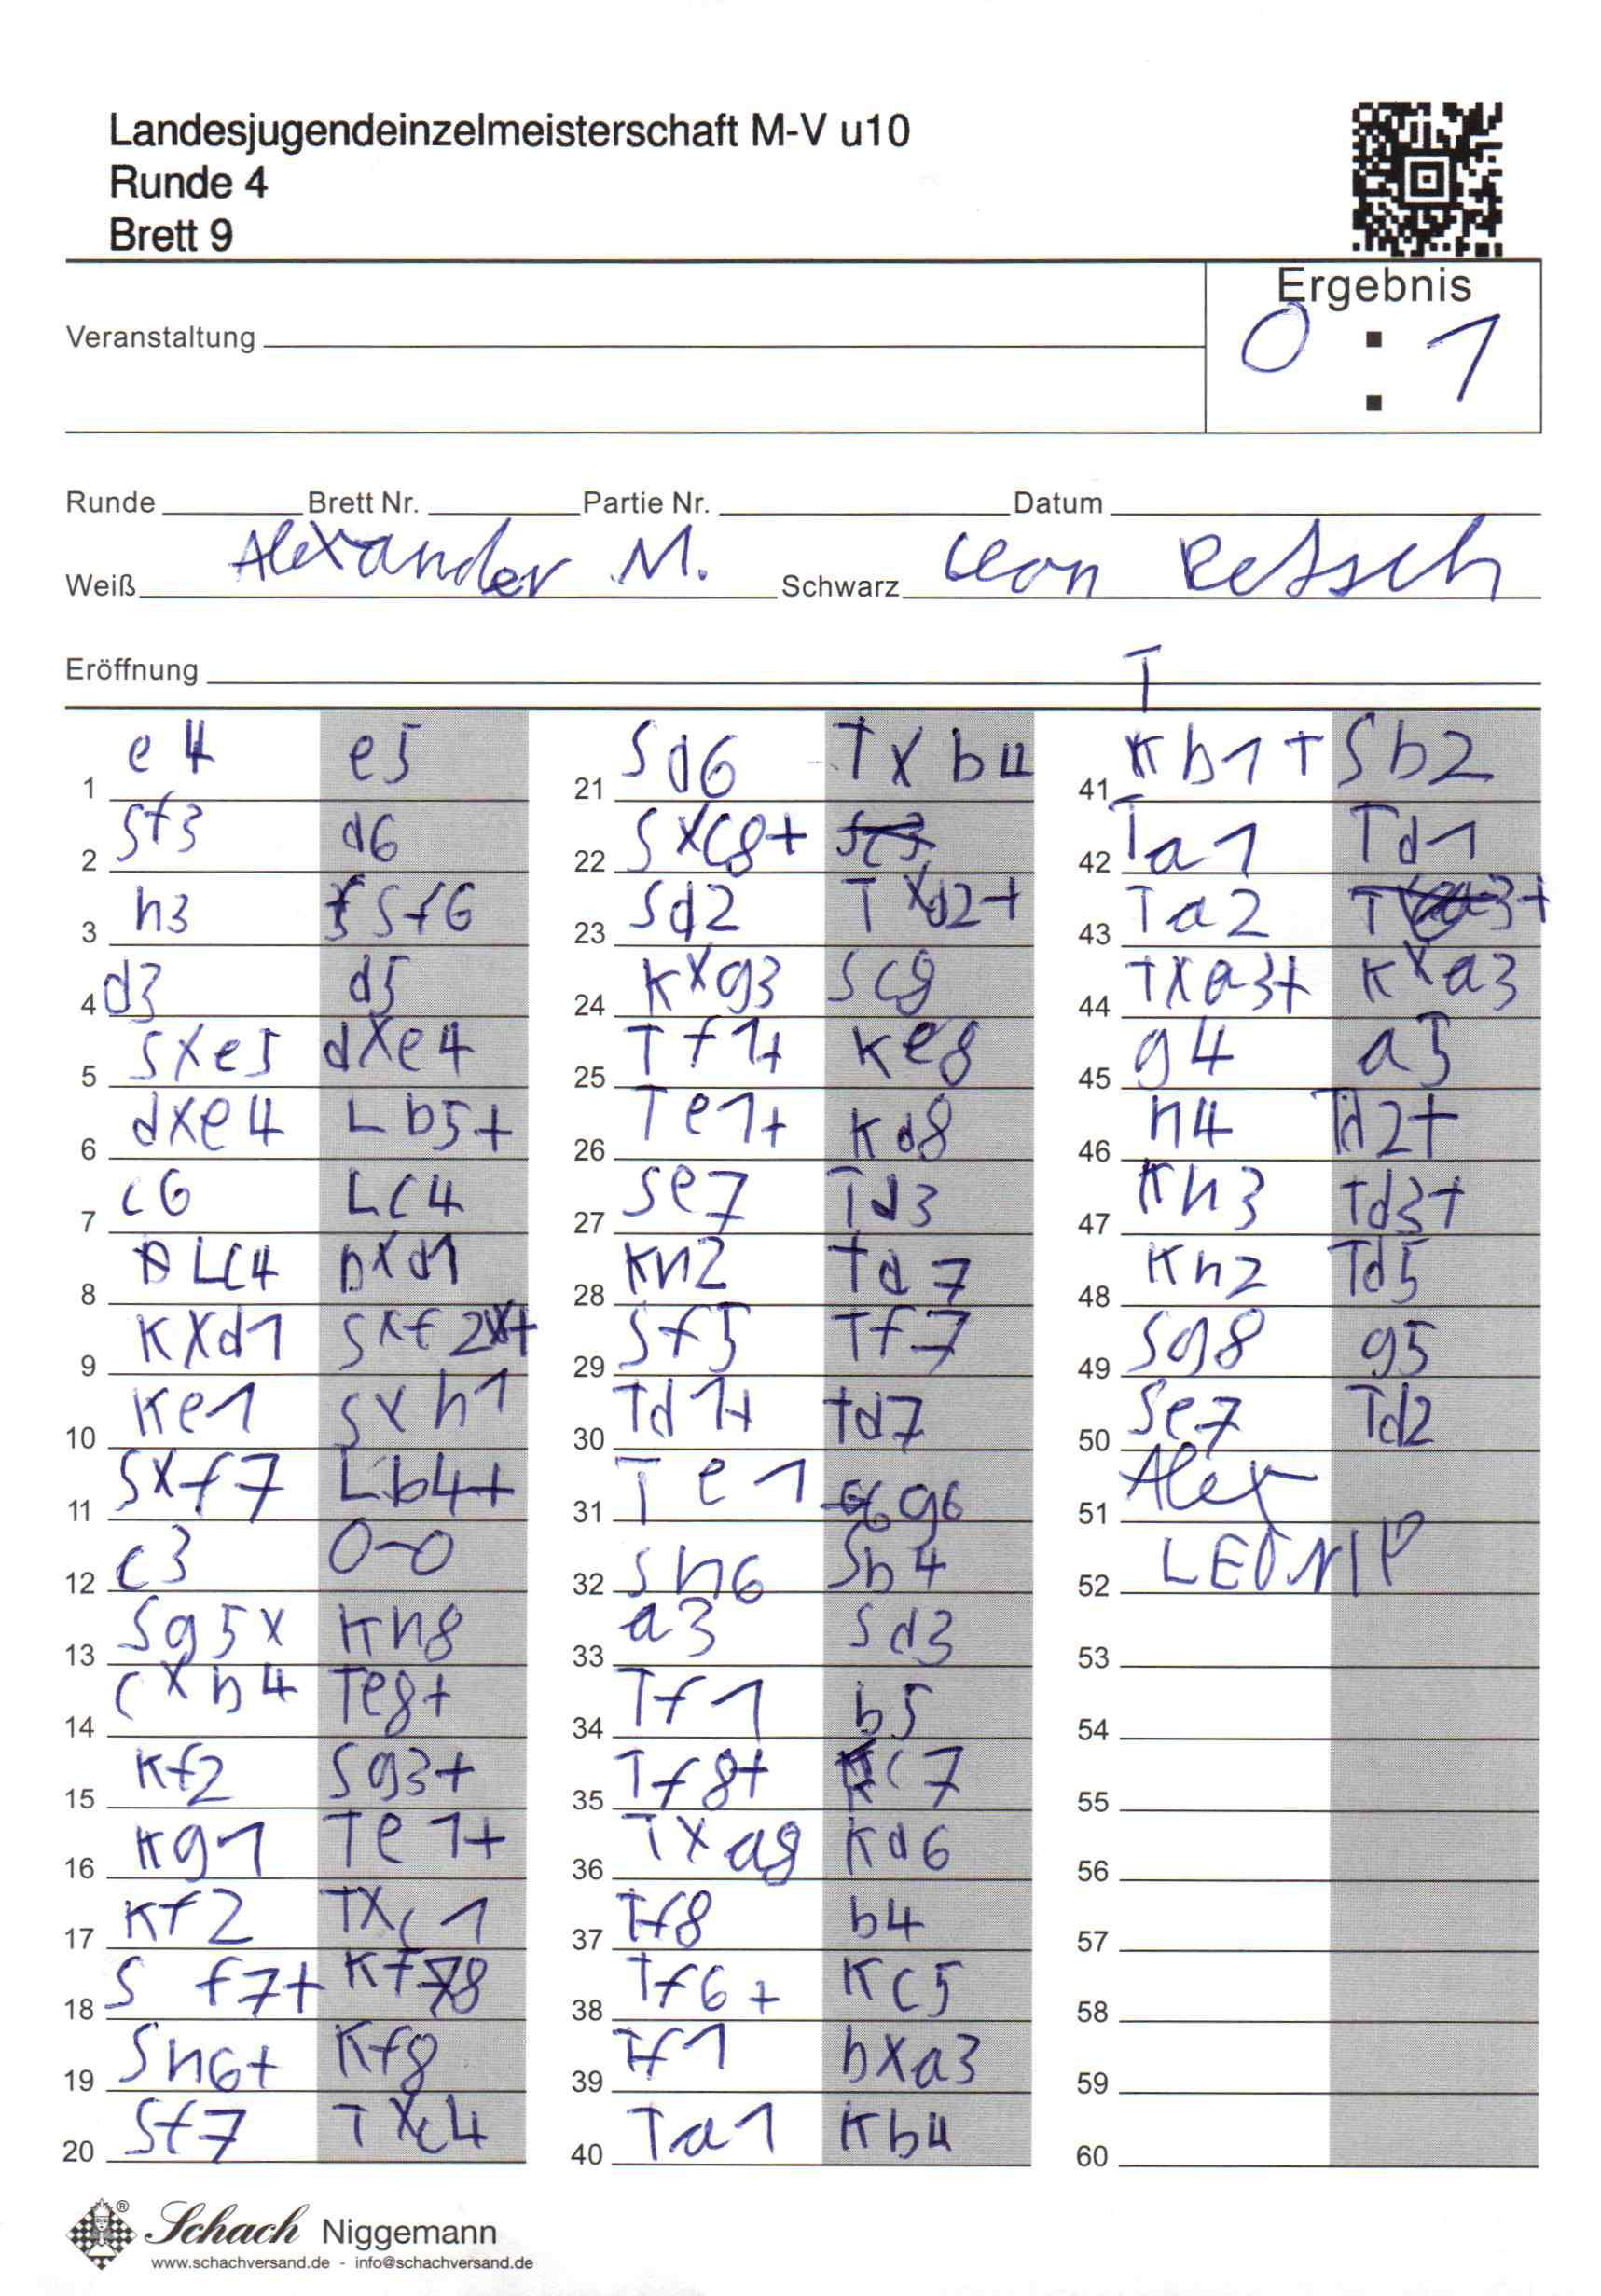 Landesjugendeinzelmeisterschaft M-V u10
Runde 4
Brett 9
Ergebnis
0 : 1
Veranstaltung
Runde Brett Nr. Partie Nr. Datum
Weiß Alexander M. Schwarz Leon Retsch
Eröffnung
1 e4 e5
2 Sf3 d6
3 h3 Sf6
4 d3 d5
5 Sxe5 dxe4
6 dxe4 Lb5+
7 c6 Lc4
8 Lc4 Dxd1
9 Kxd1 Sxf2+
10 Ke1 Sxh1
11 Sxf7 Lb4+
12 c3 0-0
13 Sg5x Kh8
14 cxb4 Te8+
15 Kf2 Sg3+
16 Kg1 Te1+
17 Kf2 Txc1
18 Sf7+ Kf8
19 Sh6+ Kf8
20 Sf7 Txc4
21 Sd6 Txb4
22 Sxc8+
23 Sd2 Txd2+
24 Kxg3 Sc8
25 Tf1+ Ke8
26 Te1+ Kd8
27 Se7 Td3
28 Kh2 Td7
29 Sf5 Tf7
30 Td1+ Td7
31 Te1 g6
32 Sh6 Sb4
33 a3 Sd3
34 Tf1 b5
35 Tf8+ Kc7
36 Txa8 Kd6
37 Tf8 b4
38 Tf6+ Kc5
39 Tf1 bxa3
40 Ta1 Kb4
T
41 Kb1+ Sb2
42 Ta1 Td1
43 Ta2
44 Txa3+ Kxa3
45 g4 a5
46 h4 Td2+
47 Kh3 Td3+
48 Kh2 Td5
49 Sg8 g5
50 Se7 Td2
51 Alex
52 LEON
53
54
55
56
57
58
59
60
Schach Niggemann
www.schachversand.de - info@schachversand.de